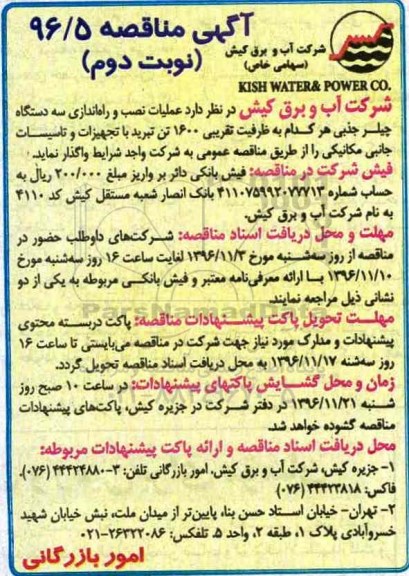 آگهی مناقصه ۹۶/۵
(نوبت دوم)
شرکت آب و برق کیش
(سهامی خاص)
KISH WATER & POWER CO.
شرکت آب و برق کیش در نظر دارد عملیات نصب و راه‌اندازی سه دستگاه
چیلر جذبی هر کدام به ظرفیت تقریبی ۱۶۰۰ تن تبرید با تجهیزات و تاسیسات
جانبی مکانیکی را از طریق مناقصه عمومی به شرکت واجد شرایط واگذار نماید.
فیش شرکت در مناقصه: فیش بانکی دائر بر واریز مبلغ ۲۰۰/۰۰۰ ریال به
حساب شماره ۴۱۱۰۷۵۹۹۲۰۷۷۷۱۳ بانک انصار شعبه مستقل کیش کد ۴۱۱۰
به نام شرکت آب و برق کیش.
مهلت و محل دریافت اسناد مناقصه: شرکت‌های داوطلب حضور در
مناقصه از روز سه‌شنبه مورخ ۱۳۹۶/۱۱/۳ لغایت ساعت ۱۶ روز سه‌شنبه مورخ
۱۳۹۶/۱۱/۱۰ با ارائه معرفی‌نامه معتبر و فیش بانکی مربوطه به یکی از دو
نشانی ذیل مراجعه نمایند.
مهلت تحویل پاکت پیشنهادات مناقصه: پاکت دربسته محتوی
پیشنهادات و مدارک مورد نیاز جهت شرکت در مناقصه می‌بایستی تا ساعت ۱۶
روز سه‌شنبه ۱۳۹۶/۱۱/۱۷ به محل دریافت اسناد مناقصه تحویل گردد.
زمان و محل گشایش پاکتهای پیشنهادات: در ساعت ۱۰ صبح روز
شنبه ۱۳۹۶/۱۱/۲۱ در دفتر شرکت در جزیره کیش، پاکت‌های پیشنهادات
مناقصه گشوده خواهد شد.
محل دریافت اسناد مناقصه و ارائه پاکت پیشنهادات مربوطه:
۱- جزیره کیش، شرکت آب و برق کیش، امور بازرگانی تلفن: ۳-۴۴۴۲۴۸۸۰ (۰۷۶)،
فاکس: ۴۴۴۲۳۸۱۸ (۰۷۶)
۲- تهران- خیابان استاد حسن بنا، پایین‌تر از میدان ملت، نبش خیابان شهید
خسروآبادی پلاک ۱، طبقه ۲، واحد ۵، تلفکس: ۲۶۳۲۲۰۸۶-۰۲۱
امور بازرگانی